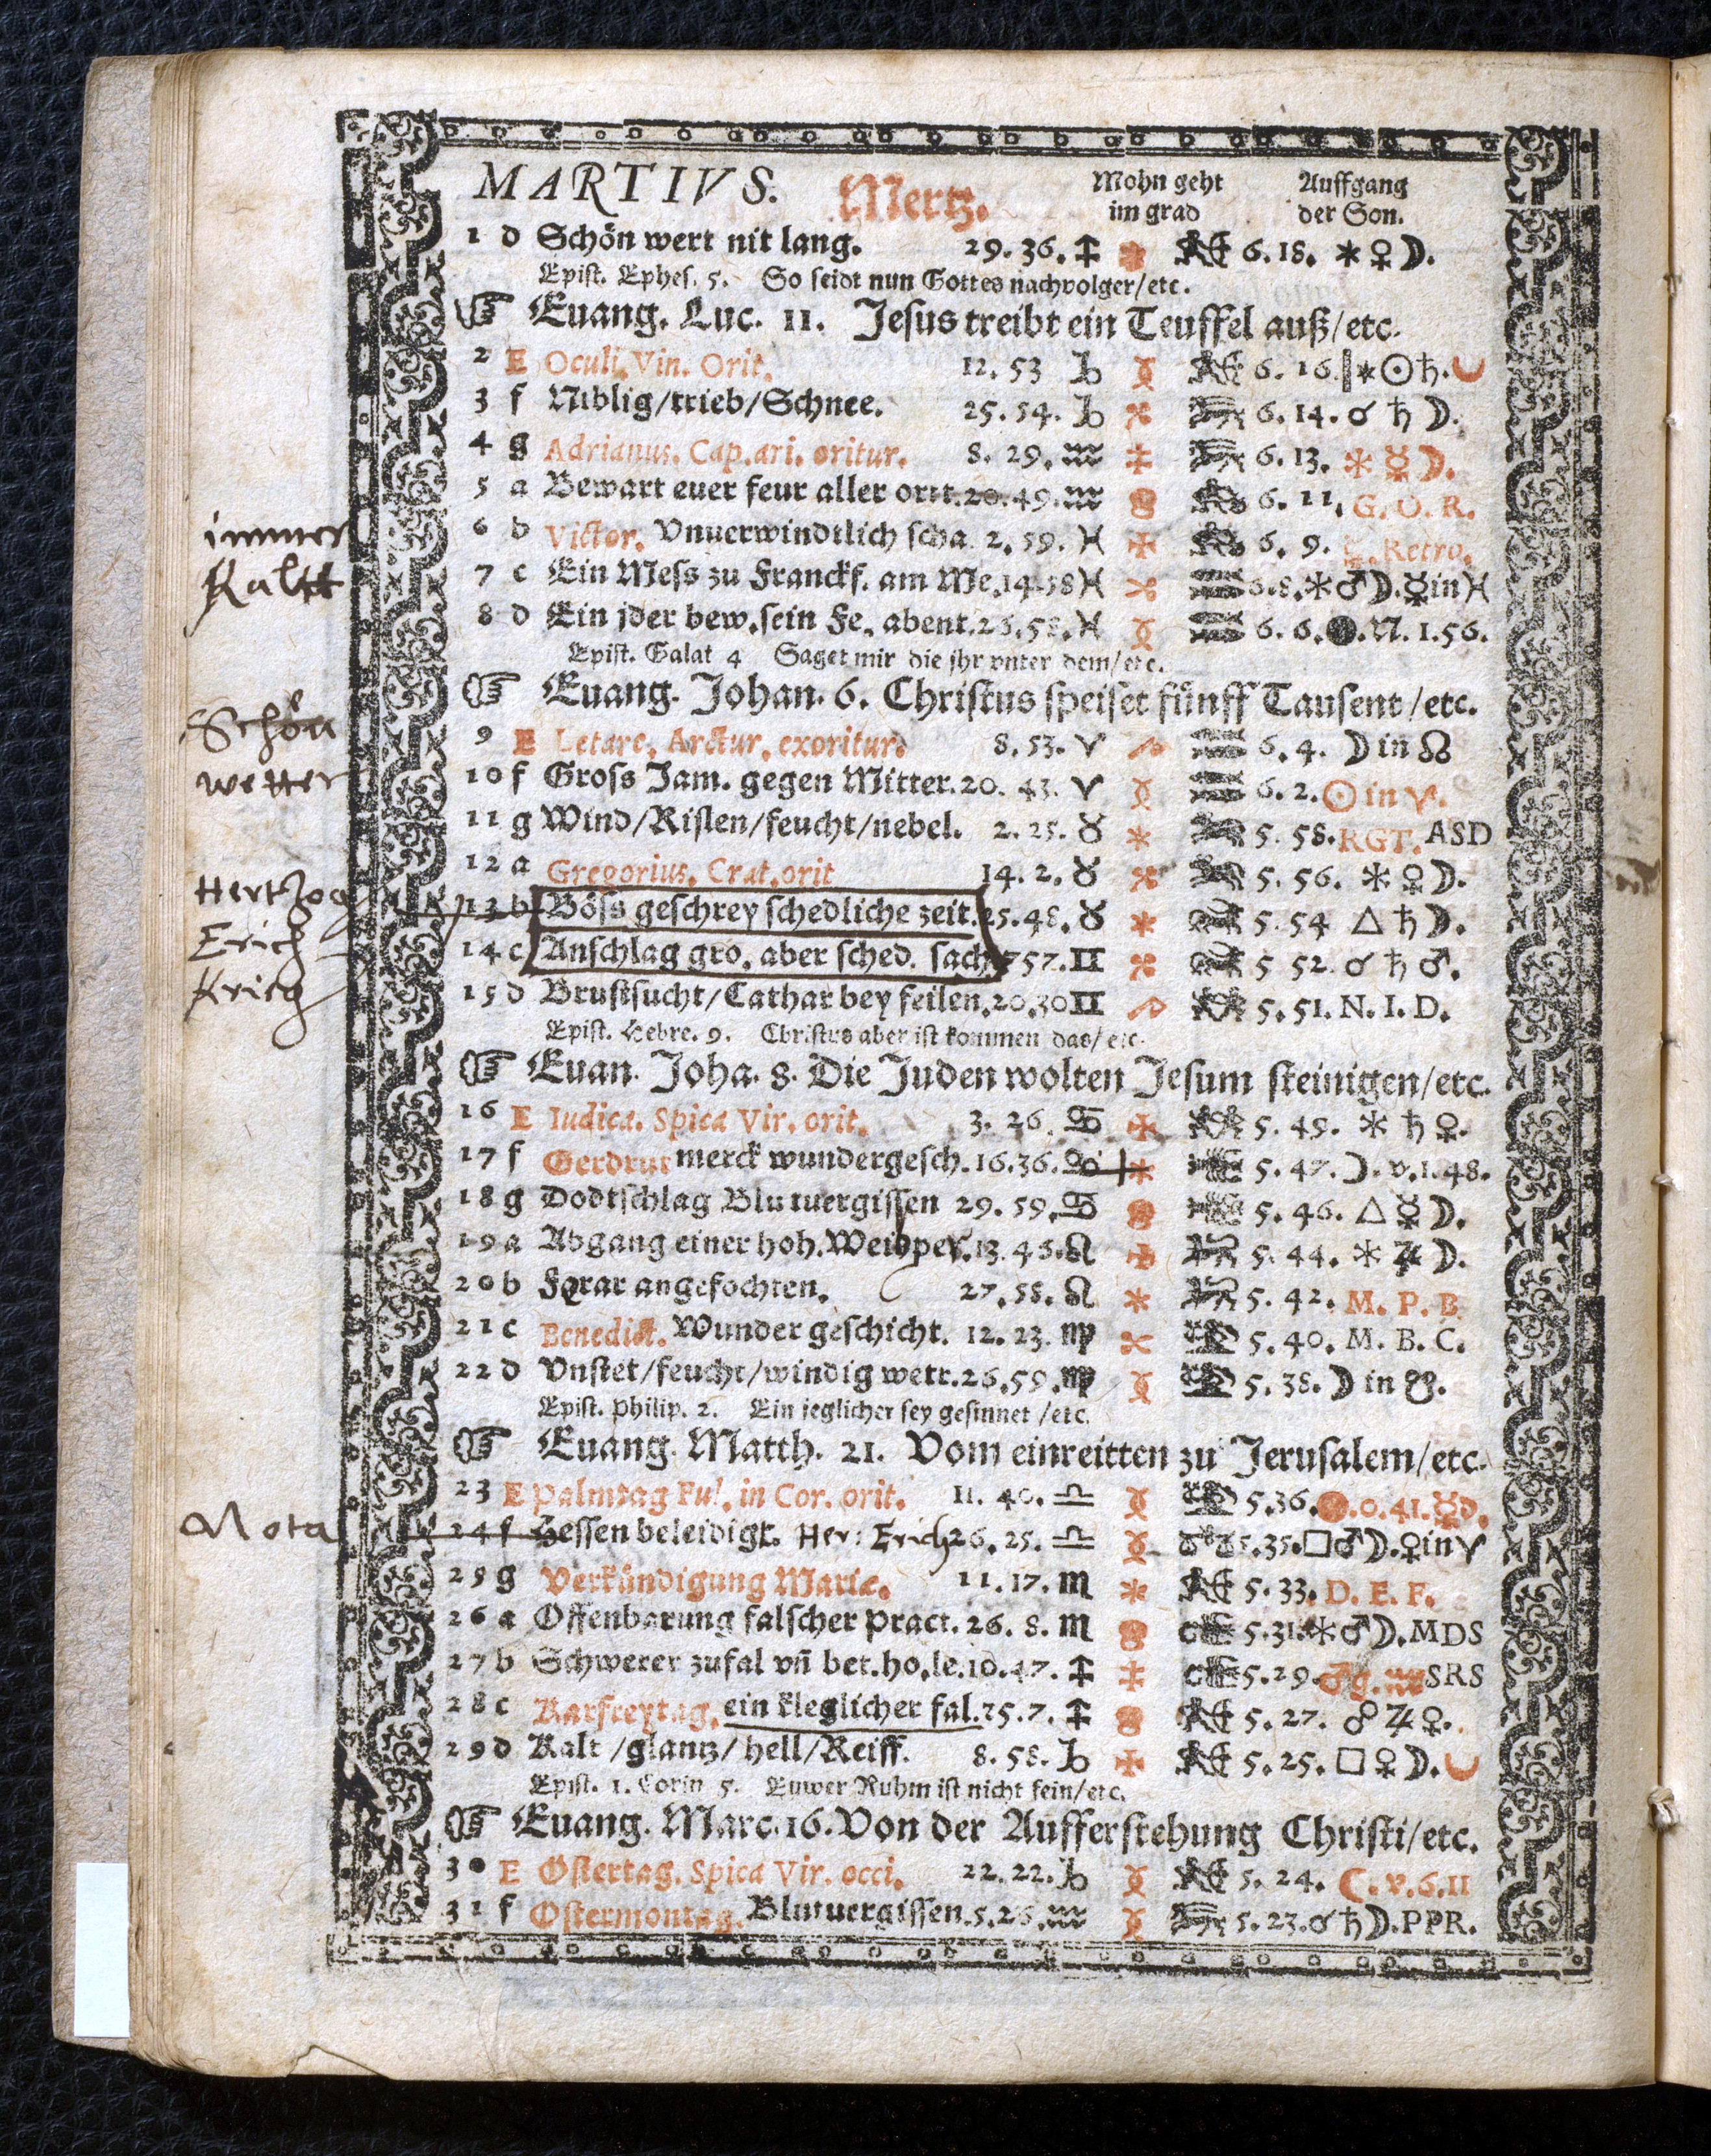 MARTIVS. Mertz. Mohn geht im grad Auffgang der Son.
1 d Schön wert nit lang. 29. 36. ♐ 6. 18. ✶ ♀ ☽.
Epist. Ephes. 5. So seidt nun Gottes nachvolger/etc.
☞ Euang. Luc. 11. Jesus treibt ein Teuffel auß/etc.
2 E Oculi. Vin. Orit. 12. 53 ♑ 6. 16. ✶ ☉ ♄.
3 f Niblig/trieb/Schnee. 25. 54. ♑ 6. 14. ☌ ♄ ☽.
4 g Adrianus. Cap. ari. oritur. 8. 29. ♒ 6. 13. ✶ ☿ ☽.
5 a Bewart euer feur aller orit. 20. 49. ♒ 6. 11. G. O. R.
immer
6 b Victor. Vnuerwindtlich scha. 2. 59. ♓ 6. 9. Retro.
Kaltt
7 c Ein Mess zu Franckf. am Me. 14. 58 ♓ 6. 8. ✶ ♂ ☽. ☿ in ♓
8 d Ein jder bew. sein Fe. abent. 26. 58. ♓ 6. 6. ●. N. 1. 56.
Epist. Galat 4 Saget mir die jhr vnter dem/etc.
☞ Euang. Johan. 6. Christus speiset fünff Tausent/etc.
Schön
9 E Letare. Arctur. exoritur. 8. 53. ♈ 6. 4. ☽ in ☊
wetter
10 f Gross Jam. gegen Mitter. 20. 43. ♈ 6. 2. ☉ in ♈.
11 g Wind/Rislen/feucht/nebel. 2. 25. ♉ 5. 58. RGT. ASD
12 a Gregorius. Crat. orit 14. 2. ♉ 5. 56. ✶ ♀ ☽.
Hertzog
13 b Böss geschrey schedliche zeit. 25. 48. ♉ 5. 54 △ ♄ ☽.
Erich
14 c Anschlag gro. aber sched. sach 7 57. ♊ 5 52. ☌ ♄ ♂.
Krieg
15 d Brustsucht/Cathar bey feilen. 20. 30 ♊ 5. 51. N. I. D.
Epist. Hebre. 9. Christus aber ist kommen das/etc.
☞ Euan. Joha. 8. Die Juden wolten Jesum steinigen/etc.
16 E Iudica. Spica Vir. orit. 3. 26. ♋ 5. 49. ✶ ♄ ♀.
17 f Gerdrut merck wundergesch. 16. 36. ♋ 5. 47. ☽. v. 1. 48.
18 g Dodtschlag Blutuergissen 29. 59. ♋ 5. 46. △ ☿ ☽.
19 a Abgang einer hoh. Weibper. 13. 45. ♌ 5. 44. ✶ ♃ ☽.
20 b angefochten. 27. 58. ♌ 5. 42. M. P. B
21 c Benedict. Wunder geschicht. 12. 23. ♍ 5. 40. M. B. C.
22 d Vnstet/feucht/windig wetr. 26. 59. ♍ 5. 38. ☽ in ☋.
Epist. Philip. 2. Ein jeglicher sey gesinnet/etc.
☞ Euang. Matth. 21. Vom einreitten zu Jerusalem/etc.
23 E Palmtag Ful. in Cor. orit. 11. 40. ♎ 5. 36. 0. 41. ☿ d.
Nota
24 f Hessen beleidigt. Her: Erich 26. 25. ♎ 5. 35. □ ♂ ☽. ♀ in ♈
25 g Verkündigung Mariæ. 11. 17. ♏ 5. 33. D. E. F.
26 a Offenbarung falscher pract. 26. 8. ♏ 5. 31. ✶ ♂ ☽. MDS
27 b Schwerer zufal vñ bet. ho. le. 10. 47. ♐ 5. 29. ♂ g. ♒ SRS
28 c Karfreytag. ein kleglicher fal. 25. 7. ♐ 5. 27. ☍ ♃ ♀.
29 d Kalt/glantz/hell/Reiff. 8. 58. ♑ 5. 25. □ ♀ ☽.
Epist. 1. Corin 5. Euwer Ruhm ist nicht fein/etc.
☞ Euang. Marc. 16. Von der Aufferstehung Christi/etc.
30 E Ostertag. Spica Vir. occi. 22. 22. ♑ 5. 24. ☾. v. 6. 11
31 f Ostermontag. Blutuergissen. 5. 26. ♒ 5. 23. ☌ ♄ ☽. PPR.